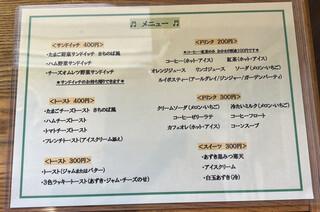 ♫ メニュー ♫
<サンドイッチ 400円>
・たまご野菜サンドイッチ きちのぱ風
・ハム野菜サンドイッチ
・チーズオムレツ野菜サンドイッチ
★サンドイッチのお持ち帰りできます★
<トースト 400円>
・たまごチーズトースト きちのぱ風
・ハムチーズトースト
・トマトチーズトースト
・フレンチトースト(アイスクリーム添え)
<トースト 300円>
・トースト(ジャムまたはバター)
・3色ラッキートースト(あずき・ジャム・チーズのせ)
<ドリンク 200円>
コーヒー(ホット・アイス) 紅茶(ホット・アイス)
オレンジジュース リンゴジュース ソーダ(メロン・いちご)
ルイボスティー(アールグレイ/ジンジャー/ガーデンパーティ)
<ドリンク 300円>
クリームソーダ(メロン・いちご) 冷たいミルク(メロン・いちご)
コーヒーゼリーラテ コーヒーフロート
カフェオレ(ホット・アイス) コーンスープ
<スイーツ 300円>
・あずき黒みつ寒天
・アイスクリーム
・白玉あずき(冷)